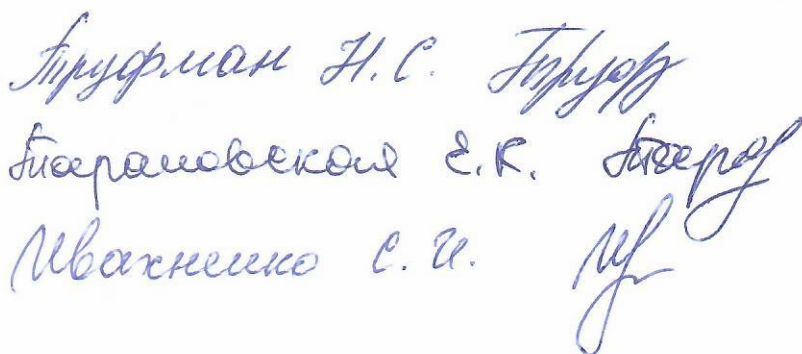 Труфман Н.С. Труф
Тарановская Е.К. Тар
Ивахненко С.И.